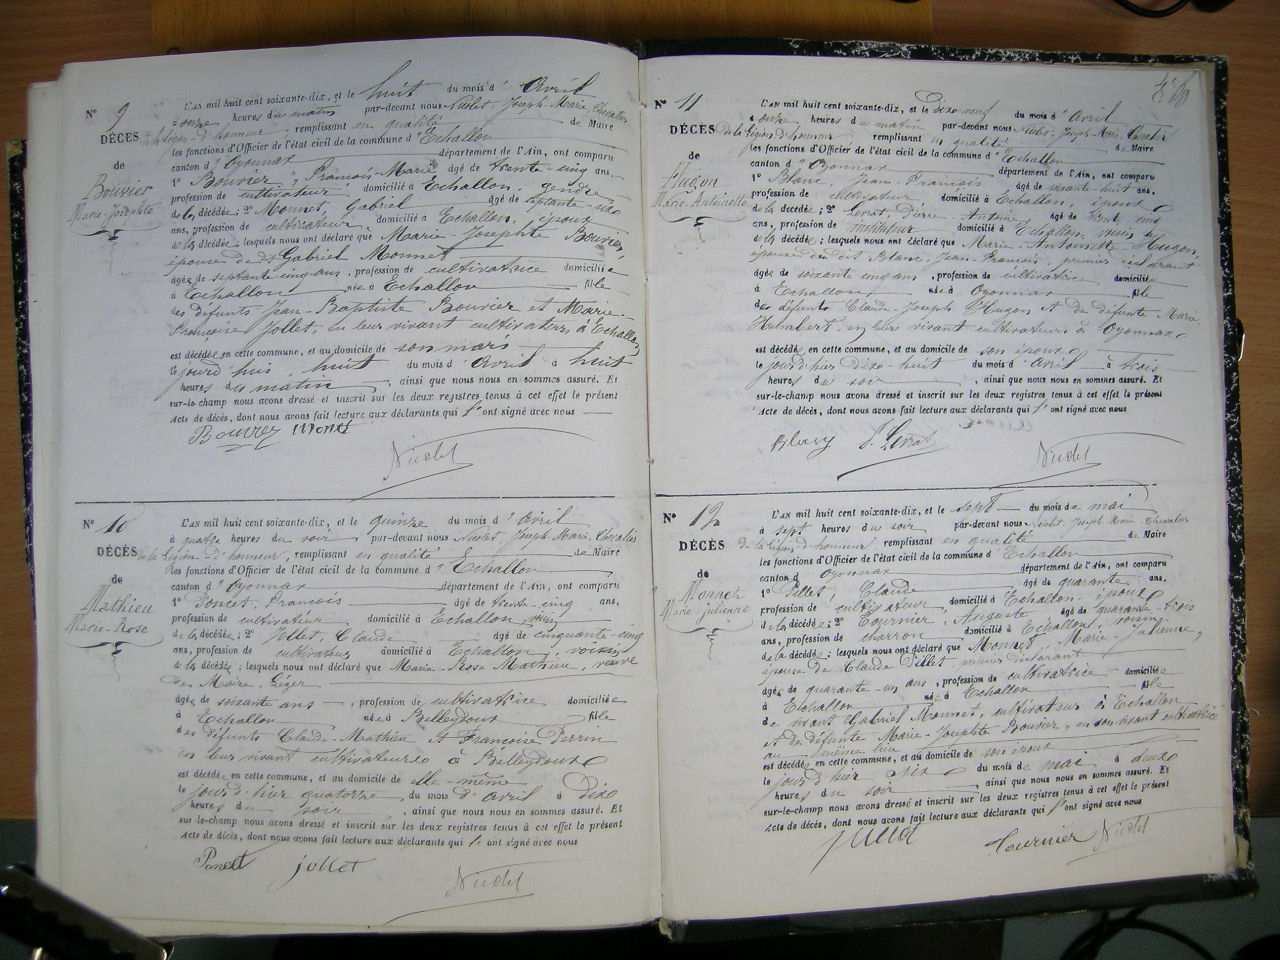 N° 9
DÉCÈS
de
Bouvier
Marie-Josephte
L'AN mil huit cent soixante-dix, et le huit du mois d'Avril
à onze heures du matin par-devant nous Nicolet, Joseph-Marie, Chevalier
de la Légion d'honneur, remplissant en qualité de Maire
les fonctions d'Officier de l'état civil de la commune d'Echallon
canton d'Oyonnax département de l'Ain, ont comparu
1° Bouvier, François-Marie âgé de trente-cinq ans,
profession de cultivateur domicilié à Echallon, gendre
de la décédée; 2° Monnet, Gabriel âgé de septante-six
ans, profession de cultivateur domicilié à Echallon, époux
de la décédée; lesquels nous ont déclaré que Marie-Josephte Bouvier,
épouse de dt Gabriel Monnet
âgée de septante-cinq ans, profession de cultivatrice domiciliée
à Echallon née à Echallon fille
des défunts Jean-Baptiste Bouvier et Marie-
Françoise Jollet, en leur vivant cultivateurs à Echallon,
est décédée en cette commune, et au domicile de son mari
le jourd'hui huit du mois d'Avril à huit
heures du matin, ainsi que nous nous en sommes assuré. Et
sur-le-champ nous avons dressé et inscrit sur les deux registres tenus à cet effet le présent
acte de décès, dont nous avons fait lecture aux déclarants qui l'ont signé avec nous
Bouvier
N° 10
DÉCÈS
de
Mathieu
Marie-Rose
L'AN mil huit cent soixante-dix, et le quinze du mois d'Avril
à quatre heures du soir par-devant nous Nicolet, Joseph-Marie, Chevalier
de la Légion d'honneur, remplissant en qualité de Maire
les fonctions d'Officier de l'état civil de la commune d'Echallon
canton d'Oyonnax département de l'Ain, ont comparu
1° Poncet, François âgé de trente-cinq ans,
profession de cultivateur domicilié à Echallon, voisin
de la décédée; 2° Jollet, Claude âgé de cinquante-cinq
ans, profession de cultivateur domicilié à Echallon, voisin
de la décédée; lesquels nous ont déclaré que Marie-Rose Mathieu, veuve
de Maire, Léger
âgée de soixante ans, profession de cultivatrice domiciliée
à Echallon née à Belleydoux fille
des défunts Claude-Mathieu et Françoise Perrin
en leur vivant cultivateurs à Belleydoux
est décédée en cette commune, et au domicile de elle-même
le jour d'hier quatorze du mois d'Avril à dix
heures du soir, ainsi que nous nous en sommes assuré. Et
sur-le-champ nous avons dressé et inscrit sur les deux registres tenus à cet effet le présent
acte de décès, dont nous avons fait lecture aux déclarants qui l'ont signé avec nous
Poncet jollet
N° 11
DÉCÈS
de
Hugon
Marie-Antoinette
L'AN mil huit cent soixante-dix, et le dix-neuf du mois d'Avril
à onze heures du matin par-devant nous Nicolet, Joseph-Marie, Chevalier
de la Légion d'honneur remplissant en qualité de Maire
les fonctions d'Officier de l'état civil de la commune d'Echallon
canton d'Oyonnax département de l'Ain, ont comparu
1° Blanc, Jean-François âgé de soixante-huit ans,
profession de cultivateur domicilié à Echallon, époux
de la décédée; 2° Levrat, Pierre-Antoine âgé de
ans, profession de instituteur domicilié à Echallon,
de la décédée; lesquels nous ont déclaré que Marie-Antoinette Hugon,
épouse du dit Blanc, Jean-François, premier déclarant
âgée de soixante cinq ans, profession de cultivatrice domiciliée
à Echallon née à Oyonnax fille
des défunts Claude-Joseph Hugon et de défunte Marie
en leur vivant cultivateurs à Oyonnax
est décédée en cette commune, et au domicile de son époux
le jour d'hier dix-huit du mois d'Avril à trois
heures du soir, ainsi que nous nous en sommes assuré. Et
sur-le-champ nous avons dressé et inscrit sur les deux registres tenus à cet effet le présent
acte de décès, dont nous avons fait lecture aux déclarants qui l'ont signé avec nous
P. Levrat
N° 12
DÉCÈS
de
Monnet
Marie-Julienne
L'AN mil huit cent soixante-dix, et le sept du mois de mai
à sept heures du soir par-devant nous Nicolet, Joseph Marie Chevalier
de la Légion d'honneur remplissant en qualité de Maire
les fonctions d'Officier de l'état civil de la commune d'Echallon
canton d'Oyonnax département de l'Ain, ont comparu
1° Pillet, Claude âgé de quarante ans,
profession de cultivateur domicilié à Echallon, époux
de la décédée; 2° Tournier, Auguste âgé de quarante-trois
ans, profession de charron domicilié à Echallon, voisin
de la décédée; lesquels nous ont déclaré que Monnet, Marie-Julienne,
épouse de Claude Pillet déclarant
âgée de quarante-un ans, profession de cultivatrice domiciliée
à Echallon née à Echallon fille
de vivant Gabriel Monnet, cultivateur à Echallon
et de défunte Marie-Josephte Bouvier, en son vivant cultivatrice
au même lieu
est décédée en cette commune, et au domicile de son époux
le jour d'hier six du mois de mai à deux
heures du soir, ainsi que nous nous en sommes assuré. Et
sur-le-champ nous avons dressé et inscrit sur les deux registres tenus à cet effet le présent
acte de décès, dont nous avons fait lecture aux déclarants qui l'ont signé avec nous
Tournier